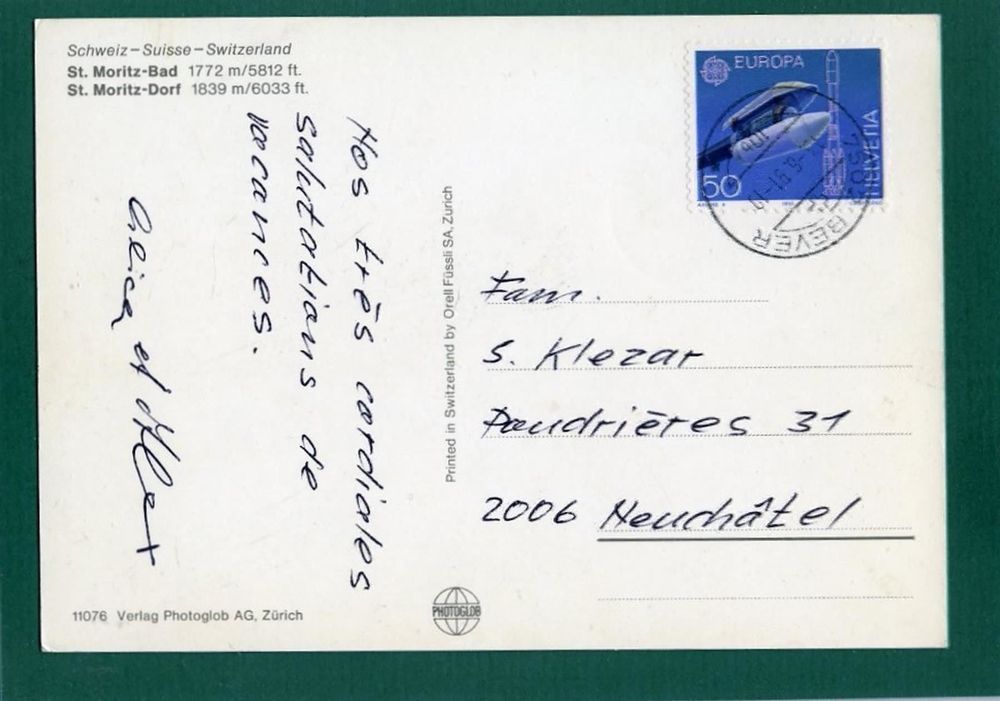 Schweiz – Suisse – Switzerland
St. Moritz-Bad 1772 m/5812 ft.
St. Moritz-Dorf 1839 m/6033 ft.
Nos très cordiales
salutations de
vacances.
et
Printed in Switzerland by Orell Füssli SA, Zurich
EUROPA
HELVETIA
50
BEVER
Fam.
S. Klezar
31
2006 Neuchâtel
11076 Verlag Photoglob AG, Zürich
PHOTOGLOB